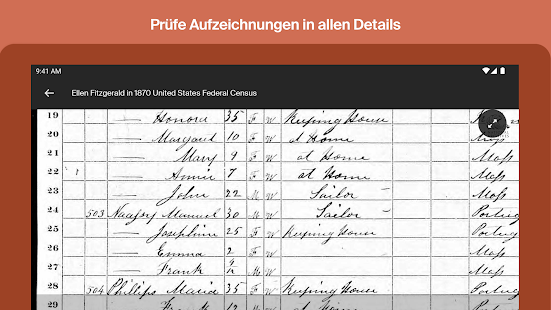 Prüfe Aufzeichnungen in allen Details
9:41 AM
Ellen Fitzgerald in 1870 United States Federal Census
19 — Honora 35 F W Keeping House
20 — Margaret 10 F W at Home Mass
21 — Mary 9 F W at Home Mass
22 — Annie 7 F W at Home Mass
23 — John 22 M W Sailor Mass
24 503 Manuel 30 M W Sailor Portug
25 — Josephine 25 F W Keeping House Portug
26 — Emma 2 F W Mass
27 — Frank M W Mass
28 504 Phillips Maria 35 F W Keeping House Portug
29 — Frank 12 M W at Home